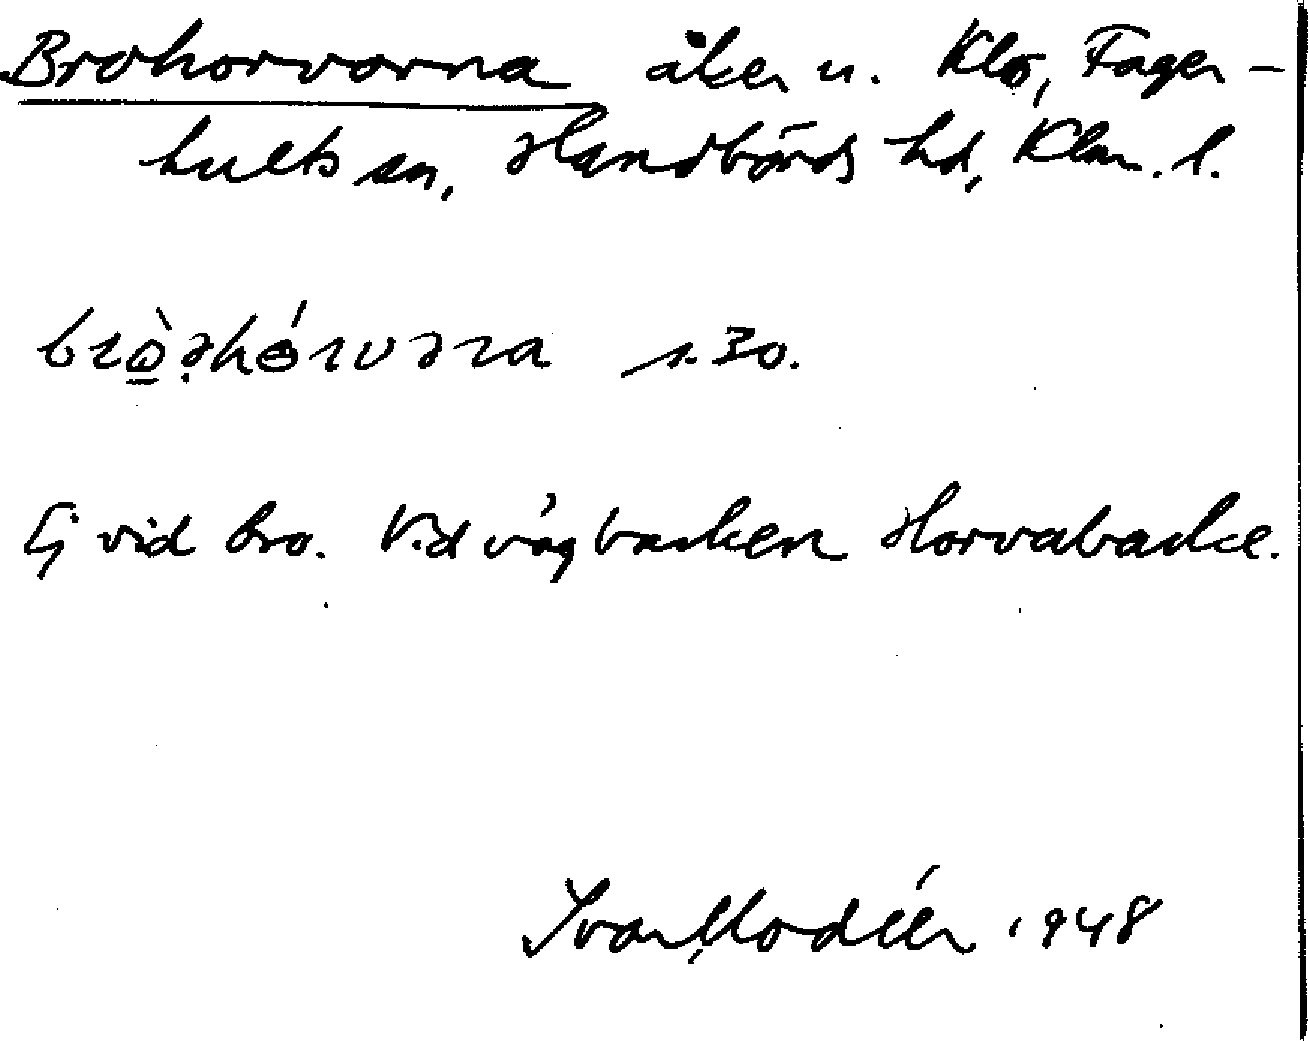 Brohorvorna åker u. Klo, Fager-
hults sn, Handbörds hd, Klm. l.
s. 30.
Ej vid bro. Vid vägbacken Horvabacke.
Ivar Modéer 1948